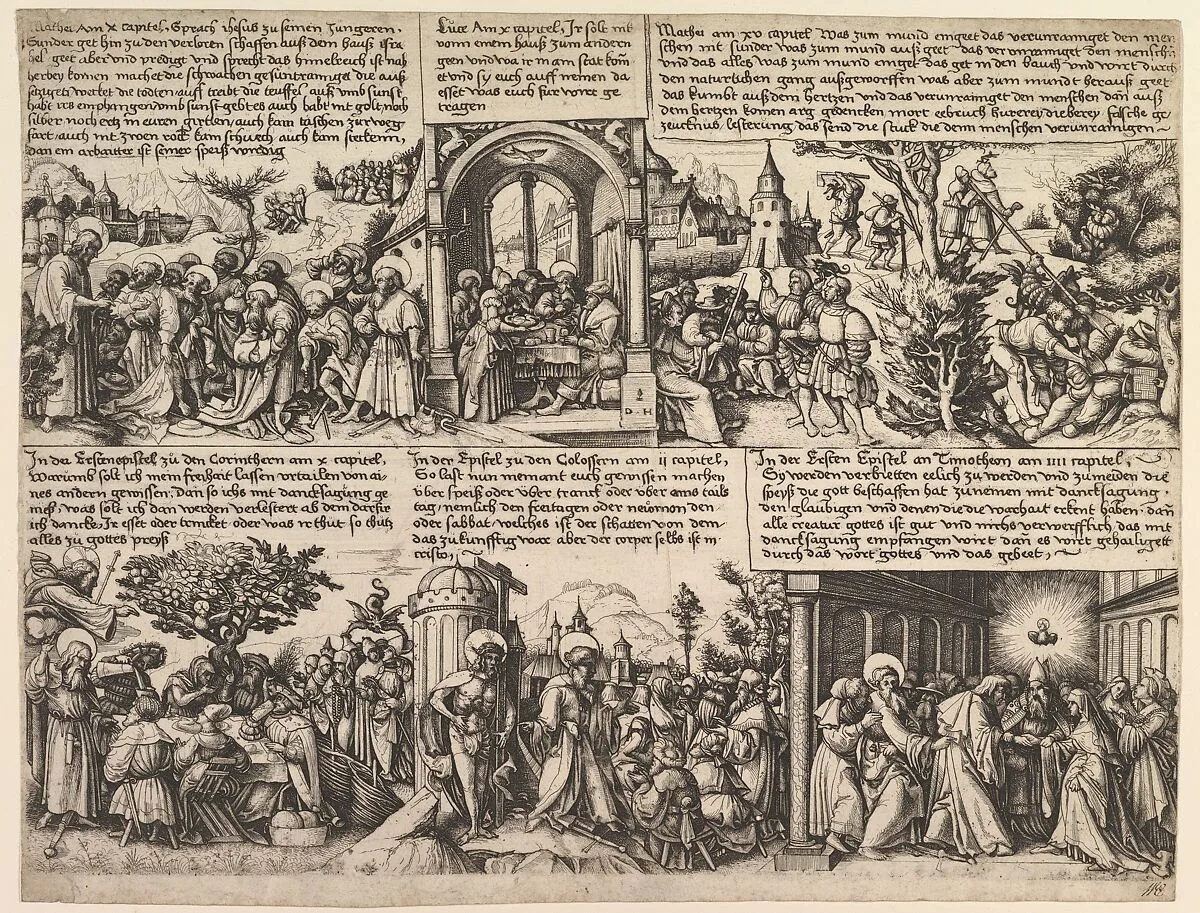 Mathei Am X capitel, Sprach ihesus zu seinen Jungeren,
Sunder get hin zu den verloren schaffen auß dem hauß isra
hel geet aber und predigt und sprecht das himelreich ist nah
herbey komen machet die schwachen gesunt raimigt die auß
setzigen wecket die todten auf treibt die teuffel auß umb sunst
habt irs emphangen umb sunst gebt es auch habt nit golt noch
silber noch ertz in euren girtlen auch kain täschen zur weg
fart auch nit zwen rock kain schuech auch kain steckenn,
dan ein arbaitter ist seiner speiß wirdig
Luce Am X capitel, Ir solt nit
vonn einem hauß zum andern
geen und wa ir in ain stat kom
et und sy euch auff nemen da
esset was euch fur wirt ge
tragen
Mathei am XV capitel Was zum mund einget das verunrainiget den men
schen nit sunder was zum mund auß geet das verunrainiget den menschn
und das alles was zum mund einget das get in den bauch und wirt durch
den naturlichen gang außgeworffen was aber zum mundt herauß geet
das kumbt auß dem hertzen und das verunrainiget den menschen dan auß
dem hertzen komen arg gedencken mort eebruch hurerey dieberey falsche ge
zeucknus lesterung das send die stuck die denn menschen verunrainigen
D H
In der Ersten epistel zu den Corinthern am X capitel,
Warumb solt ich mein freihait lassen urtailen von ai-
nes andern gewissen, Dan so ichs mit dancksagung ge
nieß, was solt ich dan werden verlestert ab dem darfir
ich dancke, Ir esset oder trincket oder was ir thut so thütz
alles zu gottes preyß
In der Epistel zu den Colossern am II capitel,
So last nun niemant euch gewissen machen
über speiß oder über tranck oder über ains tails
tag, nemlich den feirtagen oder neümon den
oder sabbat welches ist der schatten von dem
das zukunfftig war aber der corper selbs ist in
cristo,
In der Ersten Epistel an Timotheon am IIII capitel,
Sy werden verbietten eelich zu werden und zumeiden die
speyß die gott beschaffen hat zunemen mit dancksagung
den glaubigen und denen die die warhait erkent haben dan
alle creatur gottes ist gut und nichs verwerfflich das mit
dancksagung empfangen wirt dan es wirt gehailigett
durch das wort gottes und das gebeet,